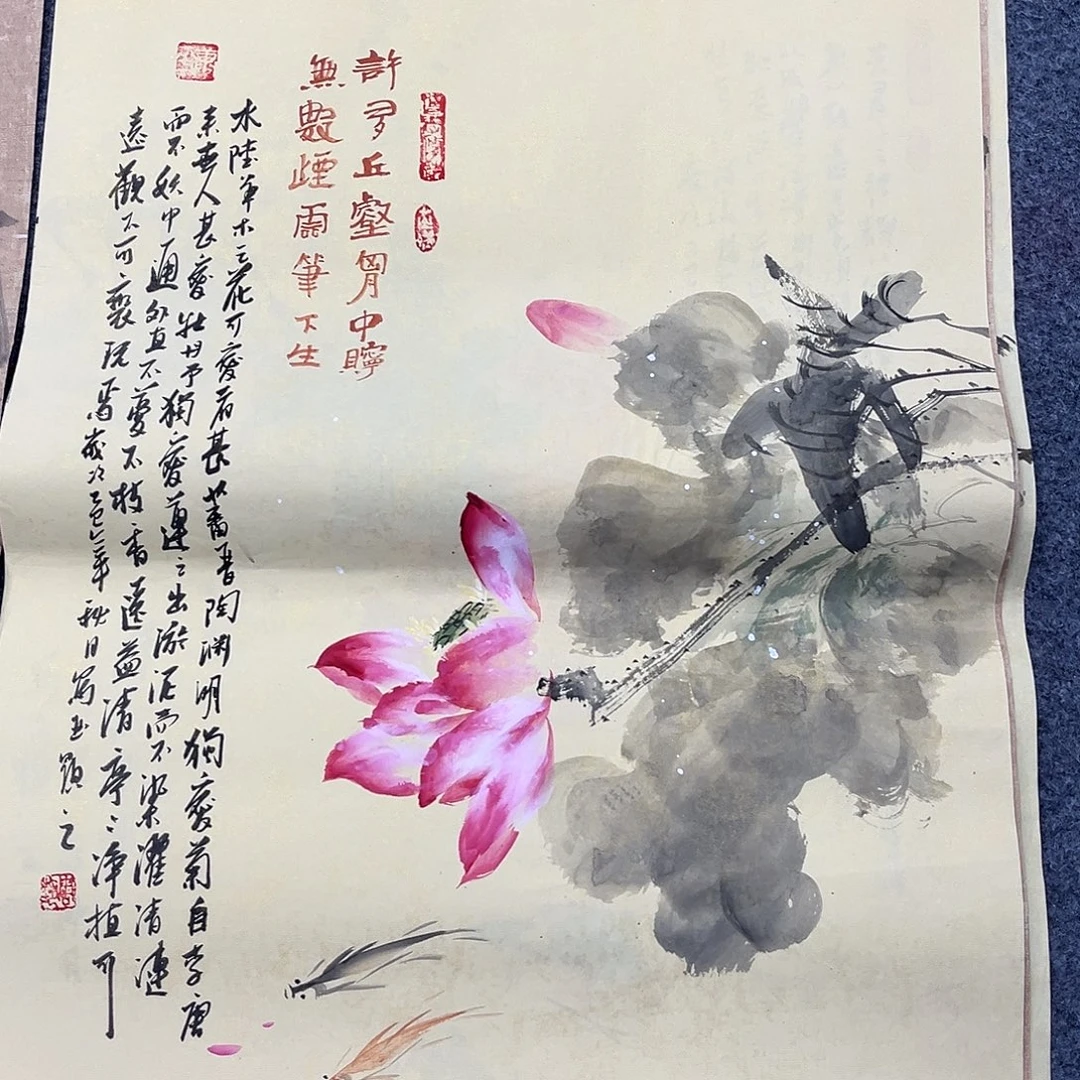 許多丘壑胷中聹
無數烟雨筆下生
水陸草木之花可愛者甚蕃晋陶渊明獨愛菊自李唐
来世人甚愛牡丹予獨愛蓮之出淤泥而不染濯清漣
而不妖中通外直不蔓不枝香遠益清亭亭净植可
遠觀不可褻玩焉歲次 年秋日寫並題之